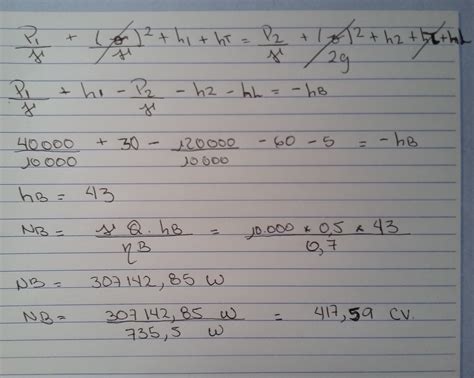 P1/γ + (v)² + h1 + hT = P2/γ + (v)²/2g + h2 + hT + hL
P1/γ + h1 - P2/γ - h2 - hL = -hB
40000/10000 + 30 - 120000/10000 - 60 - 5 = -hB
hB = 43
NB = γ Q. hB/ηB = 10.000 * 0,5 * 43/0,7
NB = 307142,85 W
NB = 307142,85 W/735,5 W = 417,59 CV.